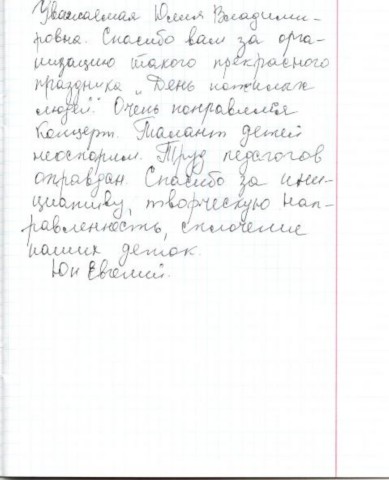 Уважаемая Юлия Владими-
ровна. Спасибо вам за орга-
низацию такого прекрасного
праздника „День пожилых
людей." Очень понравился
концерт. Талант детей
неоспорим. Труд педагогов
оправдан. Спасибо за ини-
циативу, творческую нап-
равленность, сплочение
наших деток.
Юн Евгений.